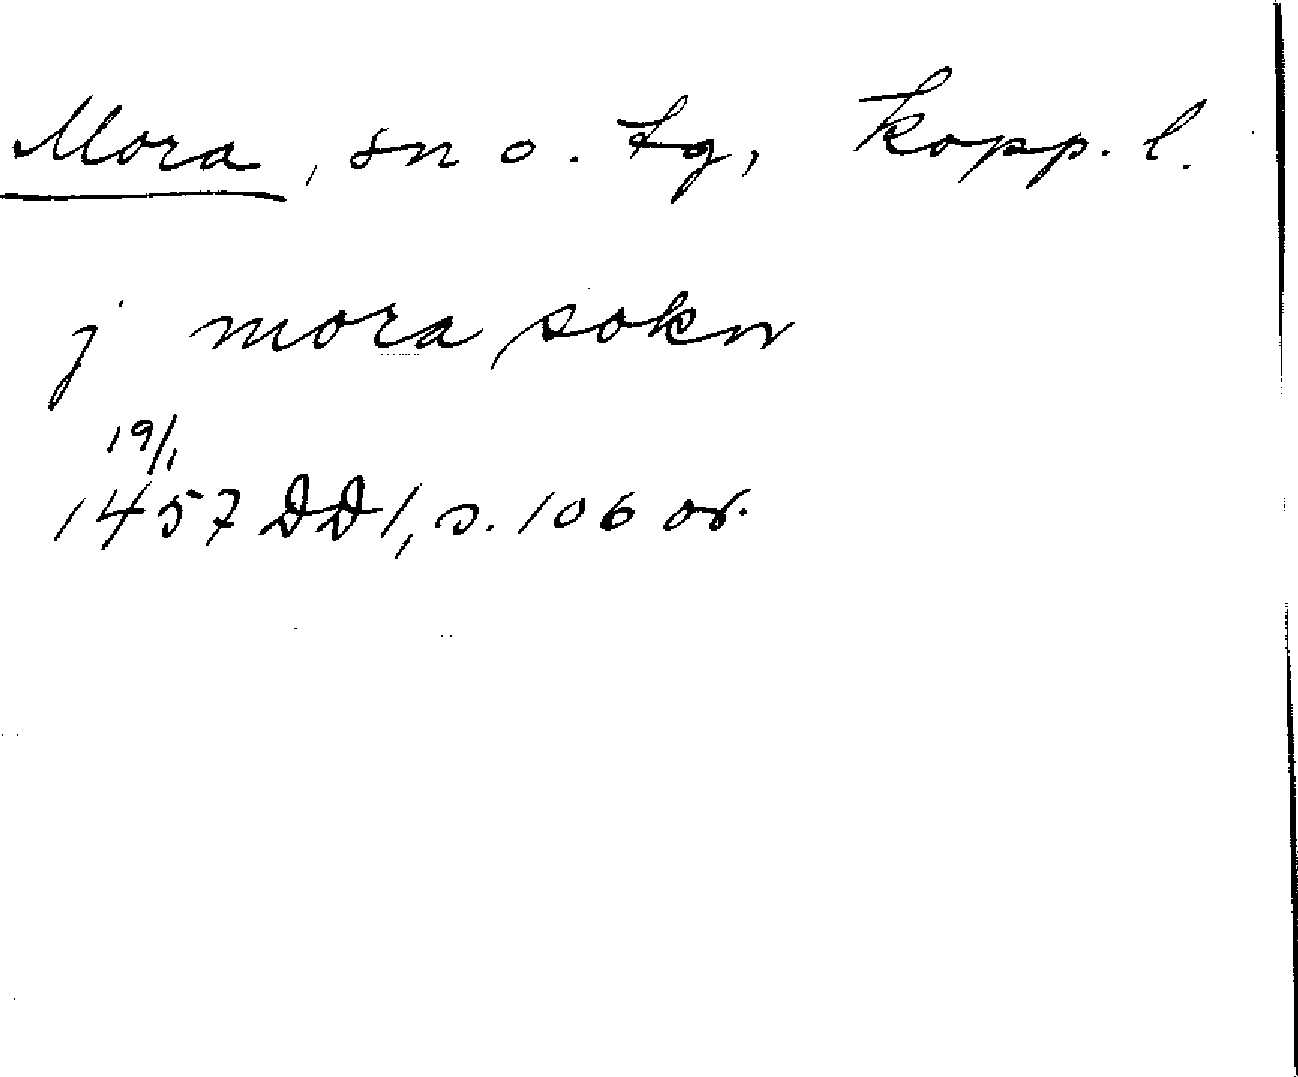 Mora, sn o. tg, Kopp. l.
j mora sokn
19/1
1457 DD 1, s. 106 or.